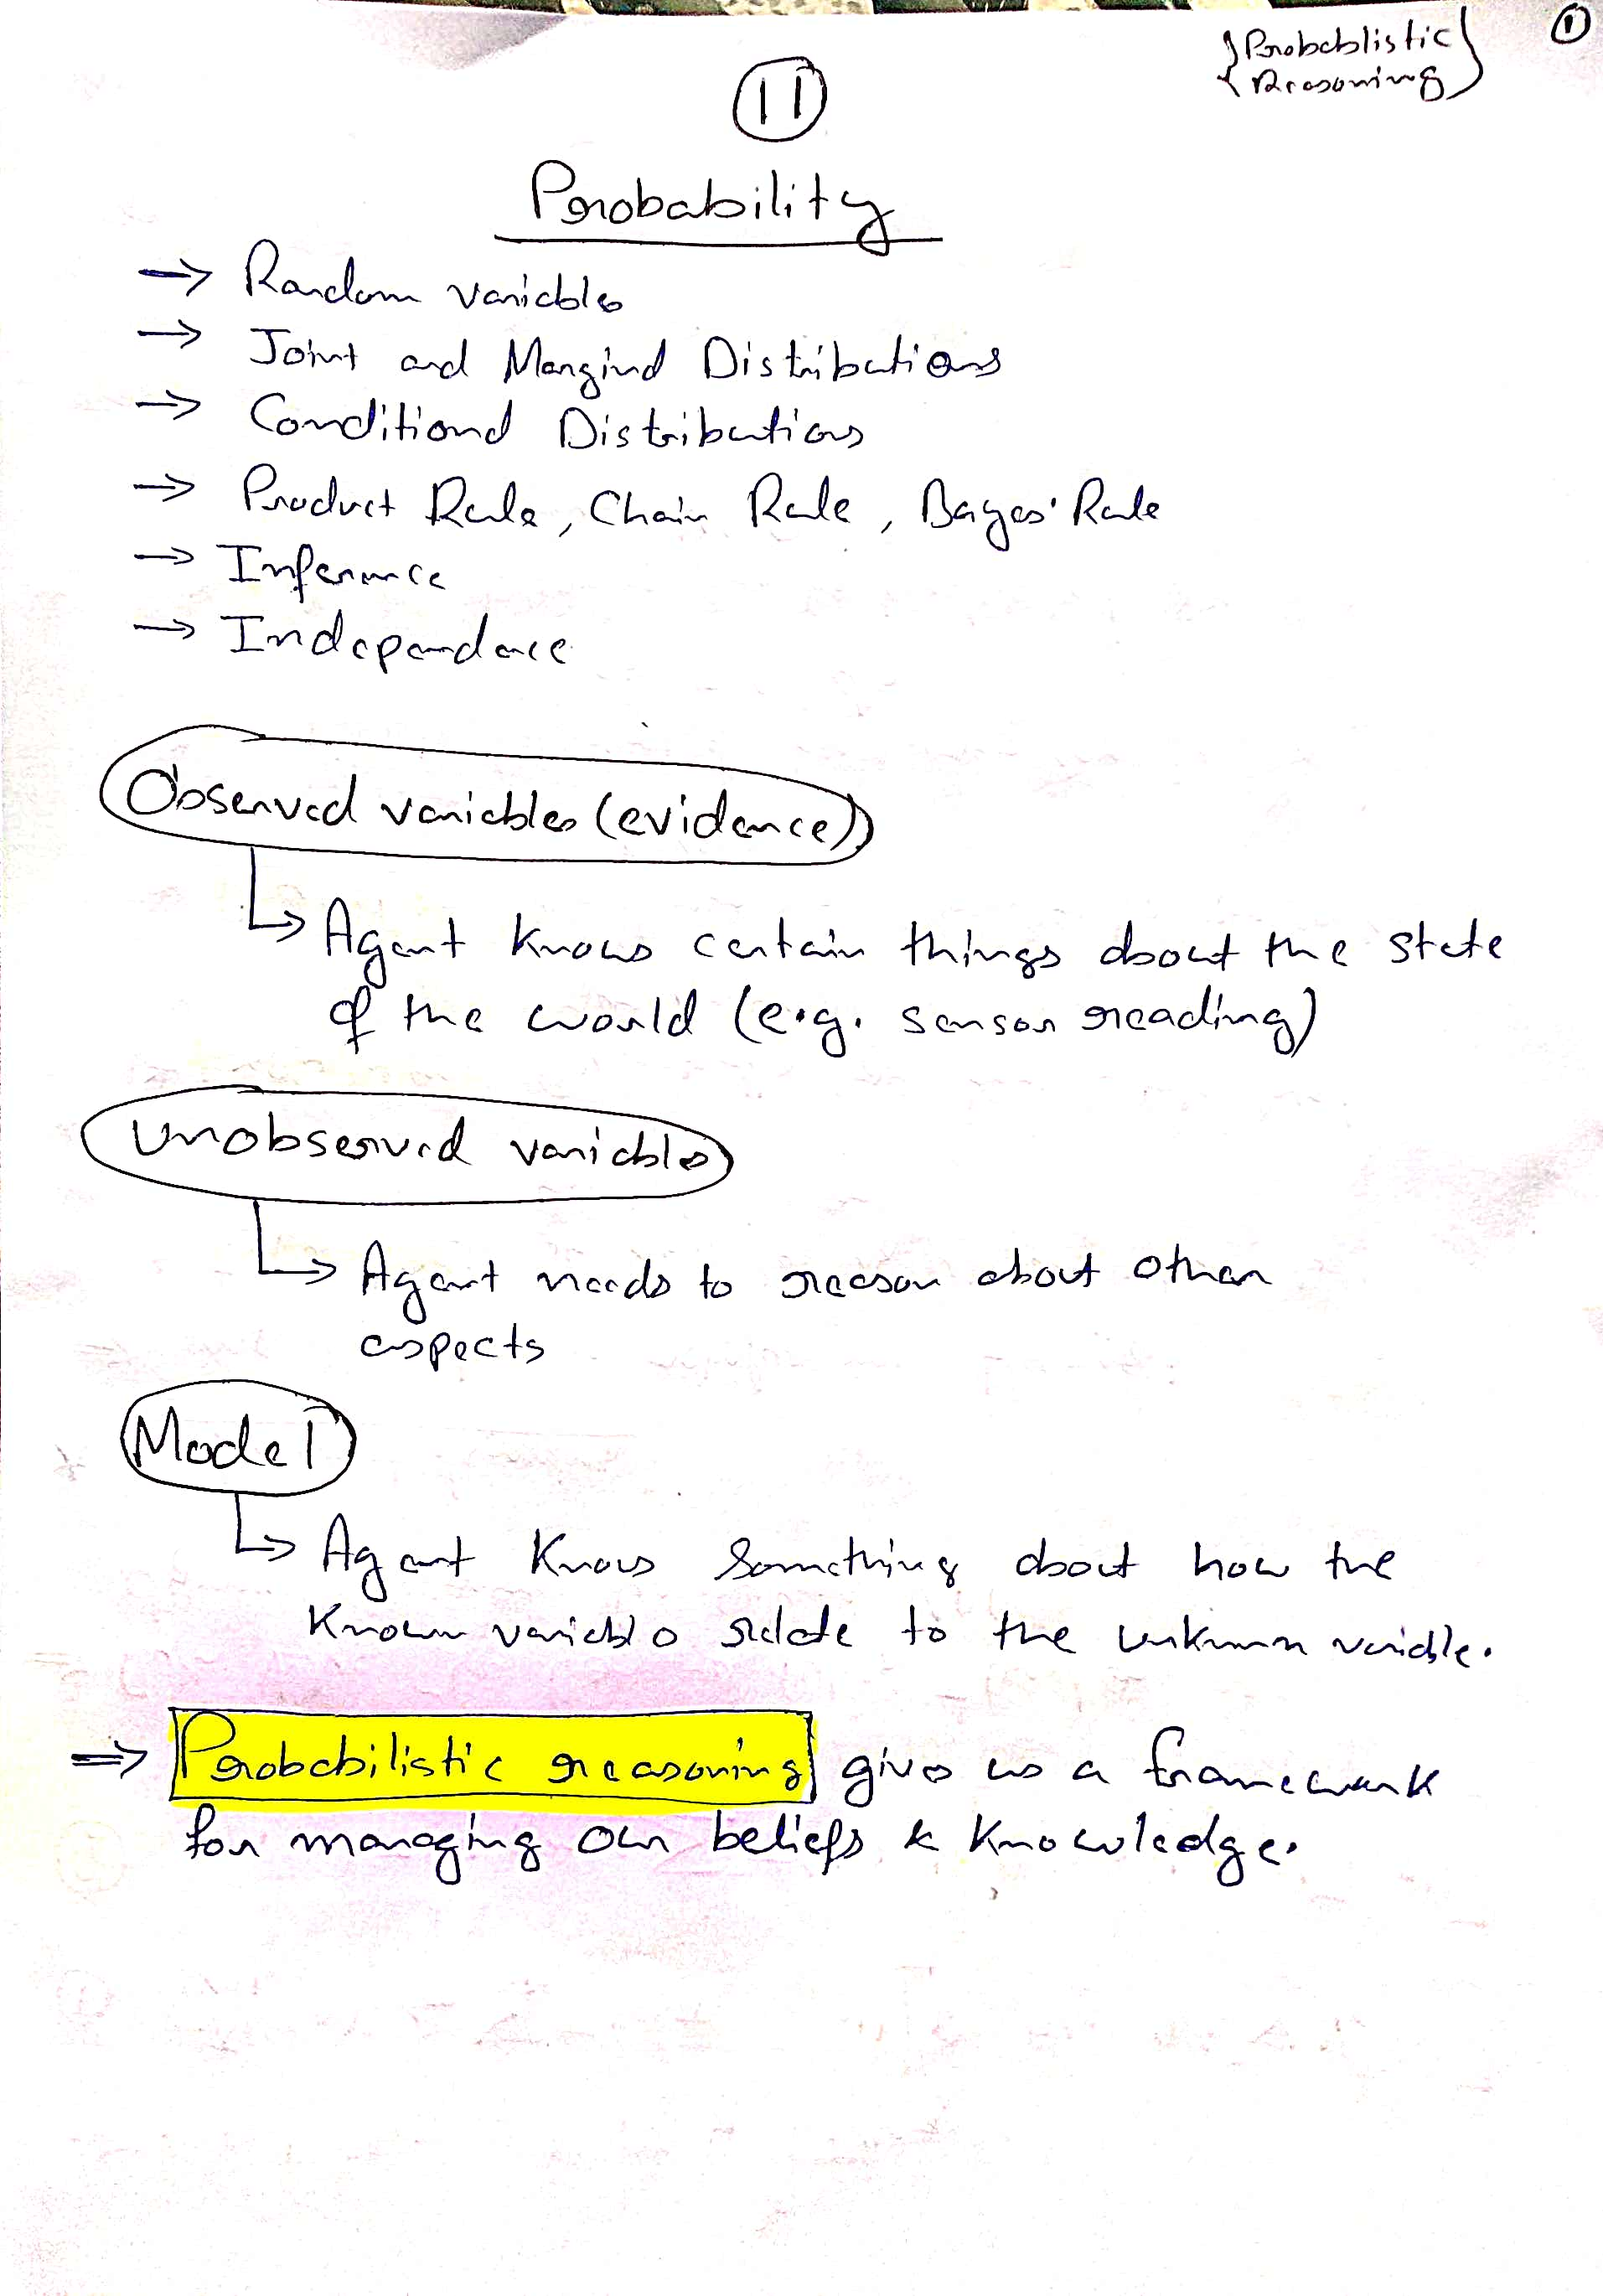 {Probablistic
Reasoning}
①
⑪
Probability
→ Random variables
→ Joint and Marginal Distributions
→ Conditional Distributions
→ Product Rule, Chain Rule, Bayes' Rule
→ Inference
→ Independence
Observed variables (evidence)
↳ Agent knows certain things about the state
of the world (e.g. sensor reading)
Unobserved variables
↳ Agent needs to reason about other
aspects
Model
↳ Agent knows something about how the
known variables relate to the unknown variable.
⇒ Probabilistic reasoning gives us a framework
for managing our beliefs & knowledge.